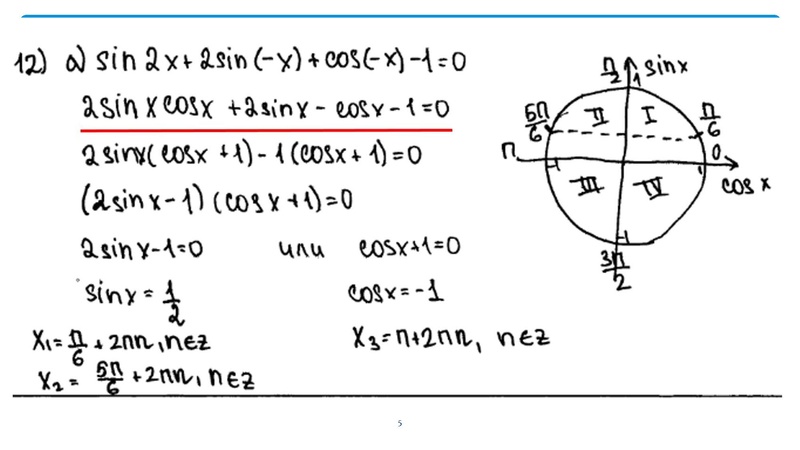 12) а) sin 2x + 2sin(-x) + cos(-x) - 1 = 0
2sin x cos x + 2sin x - cos x - 1 = 0
2sin x(cos x + 1) - 1(cos x + 1) = 0
(2sin x - 1)(cos x + 1) = 0
2sin x - 1 = 0 или cos x + 1 = 0
sin x = 1/2 cos x = -1
x₁ = π/6 + 2πn, n∈Z x₃ = π + 2πn, n∈Z
x₂ = 5π/6 + 2πn, n∈Z
π/2 1 sin x
5π/6 II I π/6
π 0
-1 1
III IV cos x
-1
3π/2
5